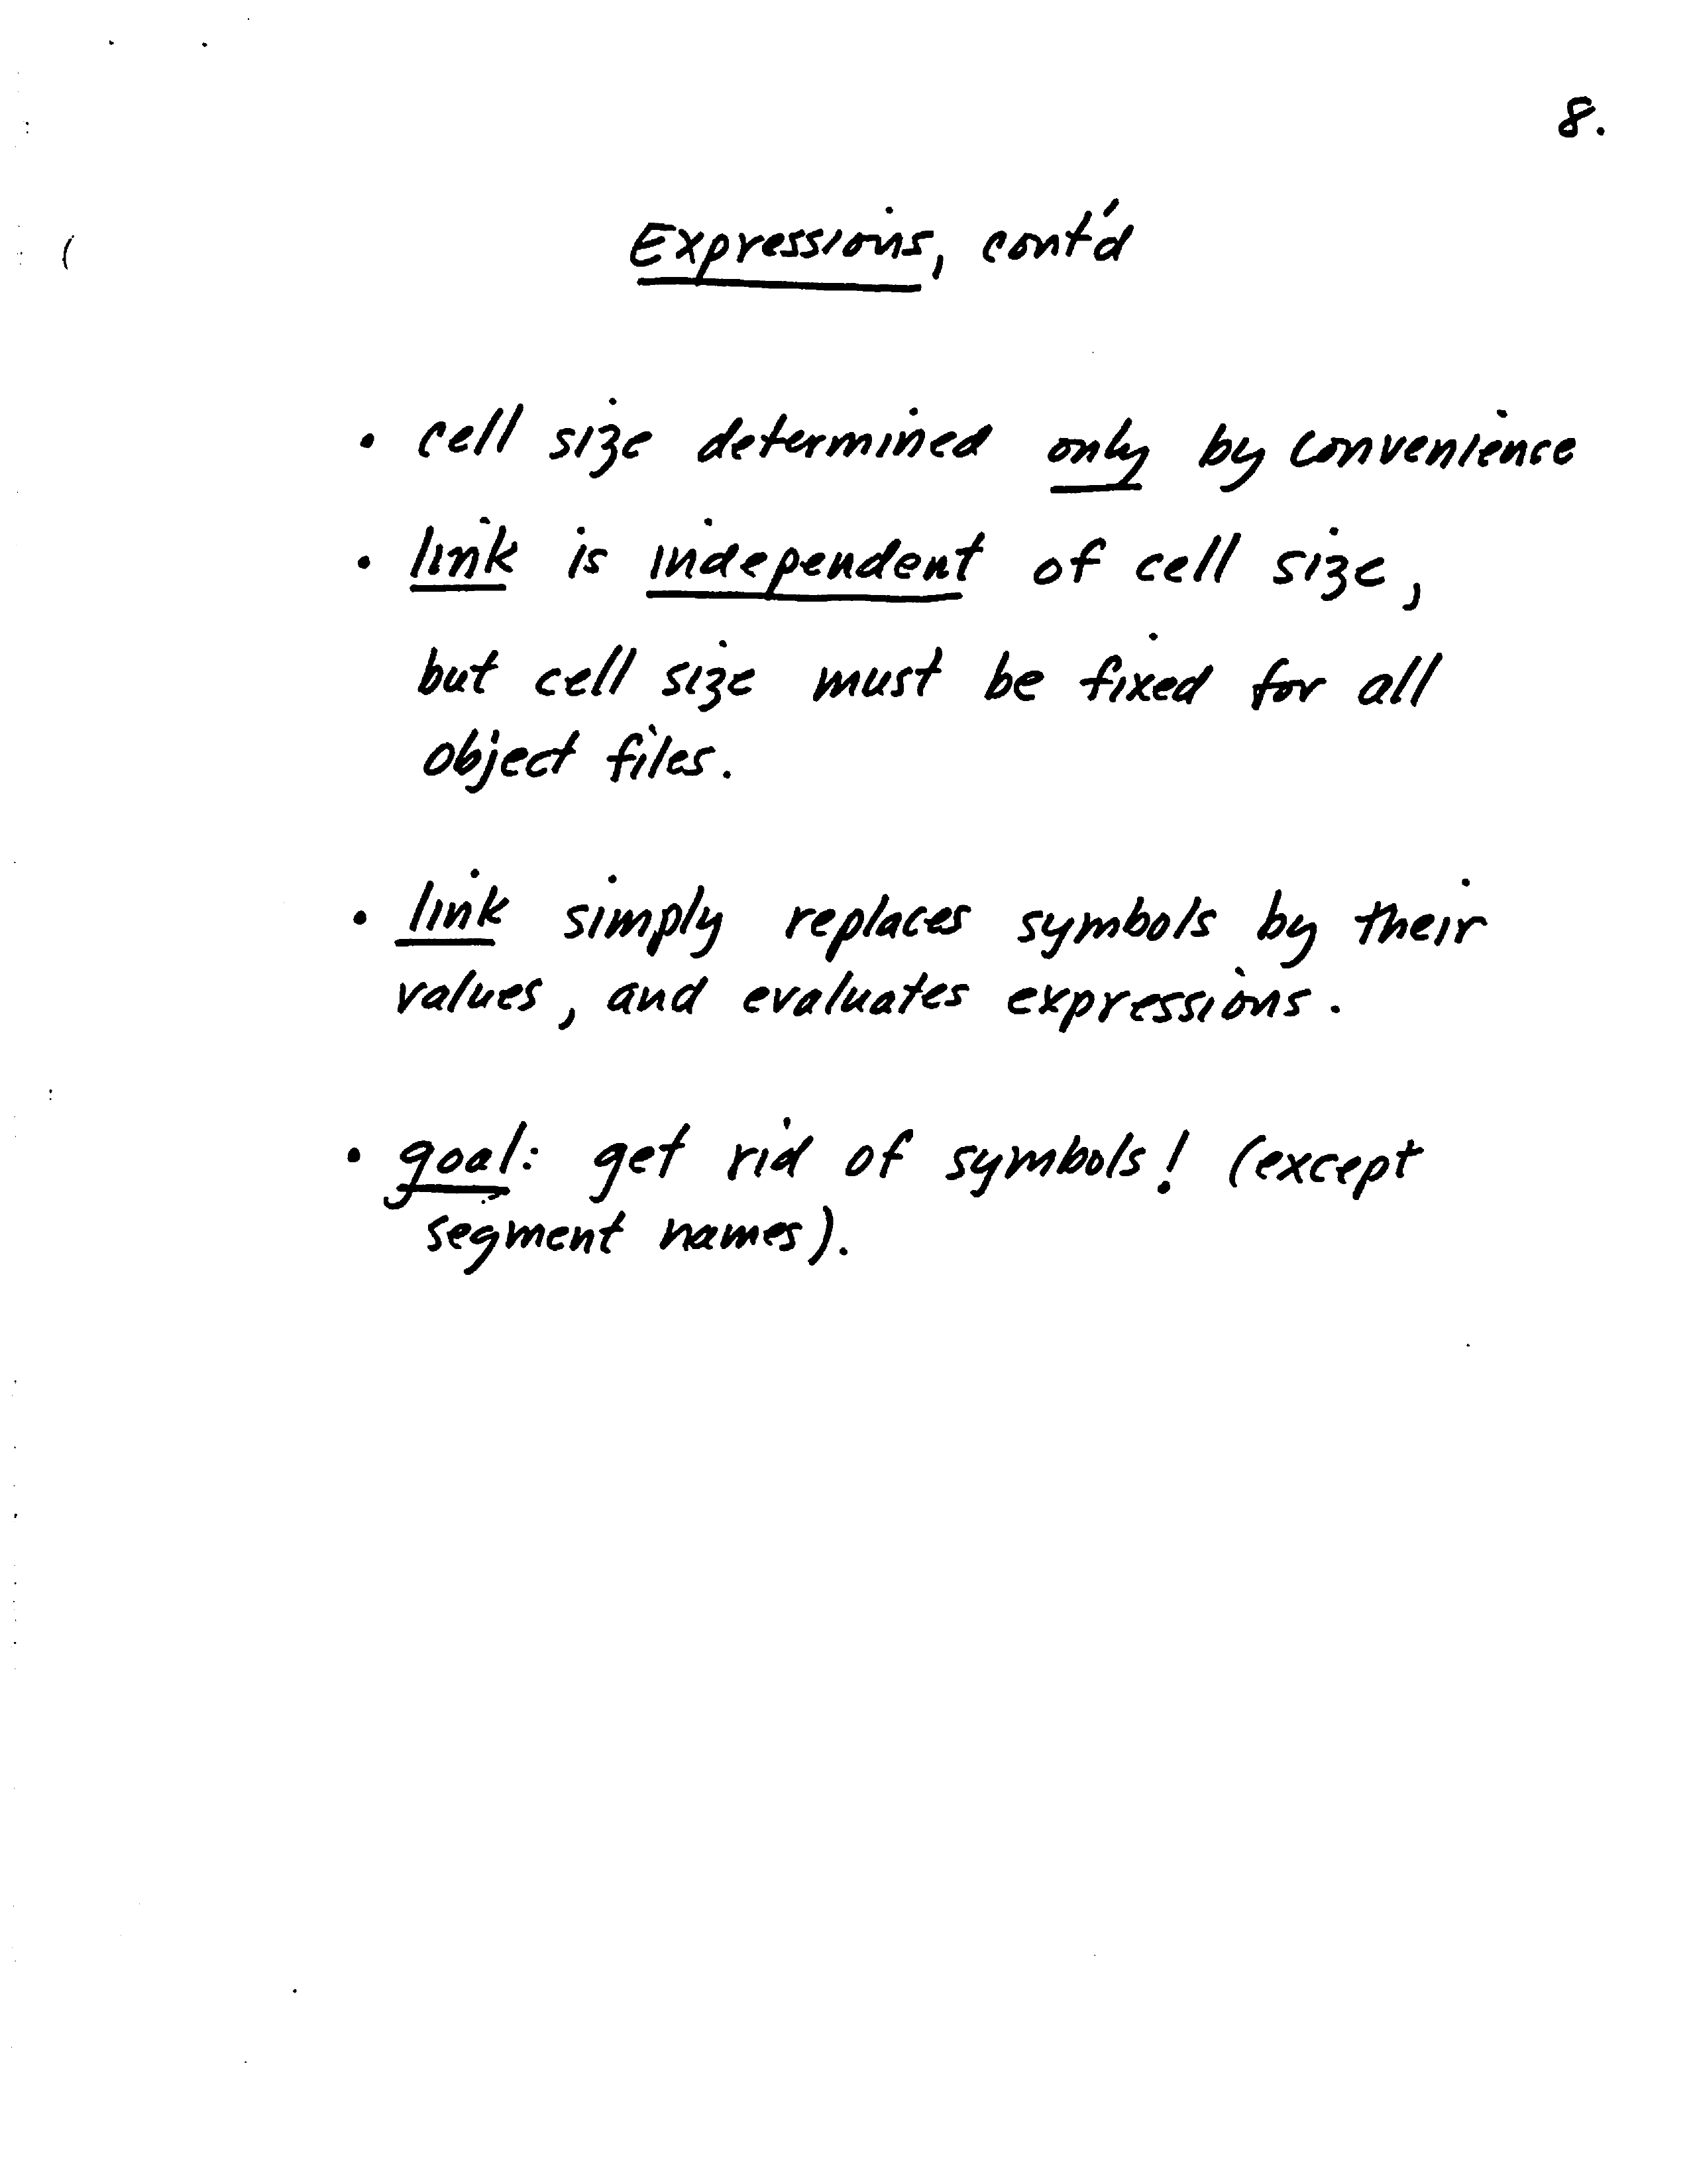 8.
Expressions, cont'd
• cell size determined only by convenience
• link is independent of cell size,
but cell size must be fixed for all
object files.
• link simply replaces symbols by their
values, and evaluates expressions.
• goal: get rid of symbols! (except
segment names).